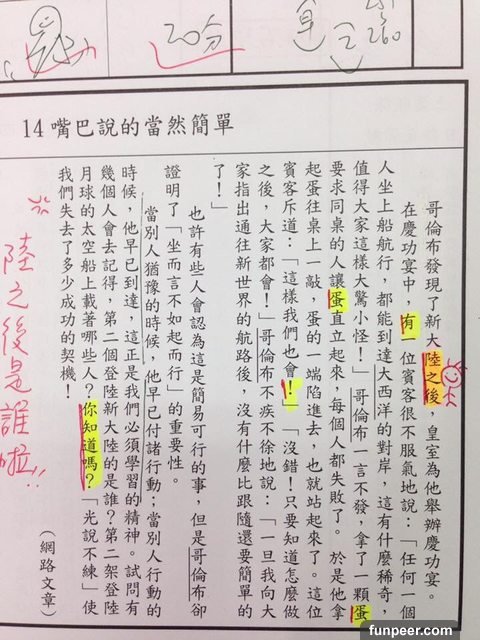 20分
260
14 嘴巴說的當然簡單
哥倫布發現了新大陸之後，皇室為他舉辦慶功宴。
在慶功宴中，有一位賓客很不服氣地說：「任何一個
人坐上船航行，都能到達大西洋的對岸，這有什麼稀奇，
值得大家這樣大驚小怪！」哥倫布一言不發，拿了一顆蛋
要求同桌的人讓蛋直立起來，每個人都失敗了。於是他拿
起蛋往桌上一敲，蛋的一端陷進去，也就站起來了。這位
賓客斥道：「這樣我們也會！」「沒錯！只要知道怎麼做
之後，大家都會！」哥倫布不疾不徐地說：「一旦我向大
家指出通往新世界的航路後，沒有什麼比跟隨還要簡單的
了！」
也許有些人會認為這是簡易可行的事，但是哥倫布卻
證明了「坐而言不如起而行」的重要性。
當別人猶豫的時候，他早已付諸行動；當別人行動的
時候，他早已到達，這正是我們必須學習的精神。試問有
幾個人會去記得，第二個登陸新大陸的是誰？第二架登陸
月球的太空船上載著哪些人？你知道嗎？「光說不練」使
我們失去了多少成功的契機！
（網路文章）
陸之後是誰啦!!
funpeer.com